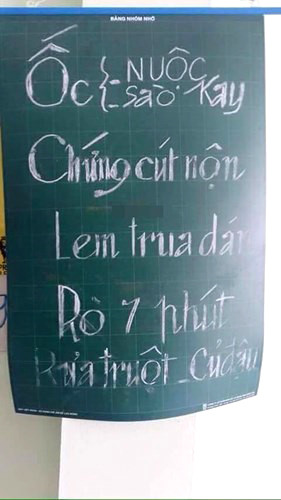 BẢNG NHÓM NHỎ
Ốc { - NUỘC
- Sào. Kay
Chứng cút nộn
Lem trua dán
Rò 7 phút
Rưa truột _ Củ đậu